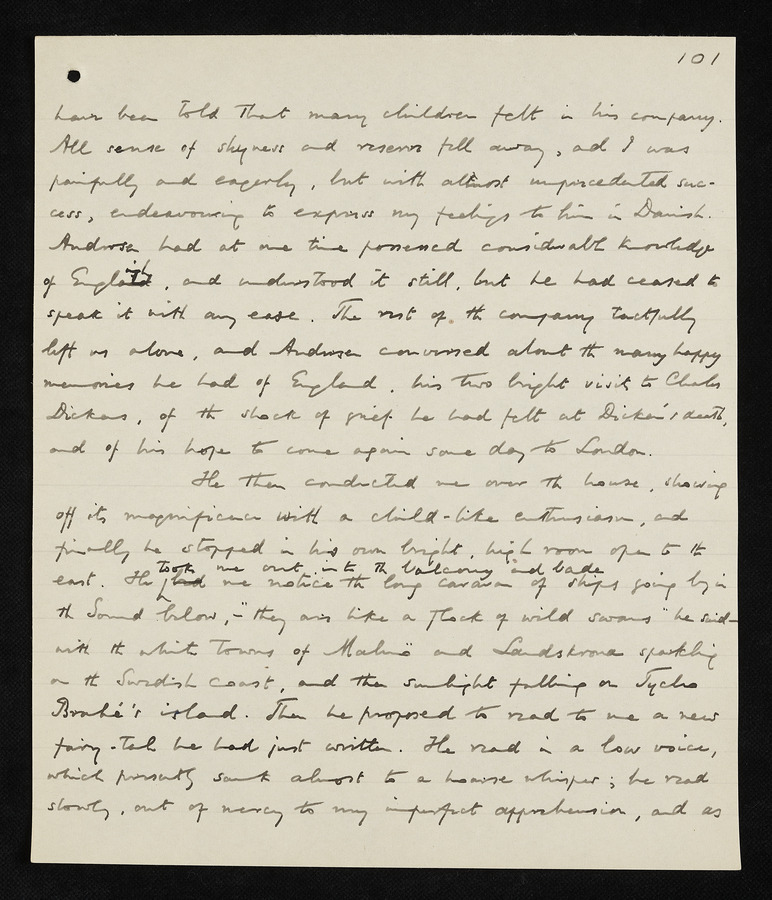 101
have been told that many children felt in his company.
All sense of shyness and reserve fell away, and I was
painfully and eagerly, but with almost unprecedented suc-
cess, endeavouring to express my feelings to him in Danish.
Andersen had at one time possessed considerable knowledge
of English, and understood it still, but he had ceased to
speak it with any ease. The rest of the company tactfully
left us alone, and Andersen conversed about the many happy
memories he had of England, his two bright visits to Charles
Dickens, of the shock of grief he had felt at Dickens's death,
and of his hope to come again some day to London.
He then conducted me over the house, showing
off its magnificence with a child-like enthusiasm, and
finally he stopped in his own bright, high room open to the
took me out into the balcony and bade
east. He had me notice the long caravan of ships going by in
the Sound below, – "they are like a flock of wild swans" he said –
with the white towns of Malmö and Landskrona sparkling
on the Swedish coast, and the sunlight falling on Tycho
Brahé's island. Then he proposed to read to me a new
fairy-tale he had just written. He read in a low voice,
which presently sank almost to a hoarse whisper; he read
slowly, out of mercy to my imperfect apprehension, and as